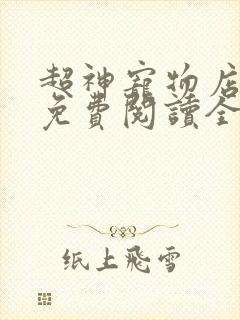 超神寵物店
免費閱讀全
纸上飛雪